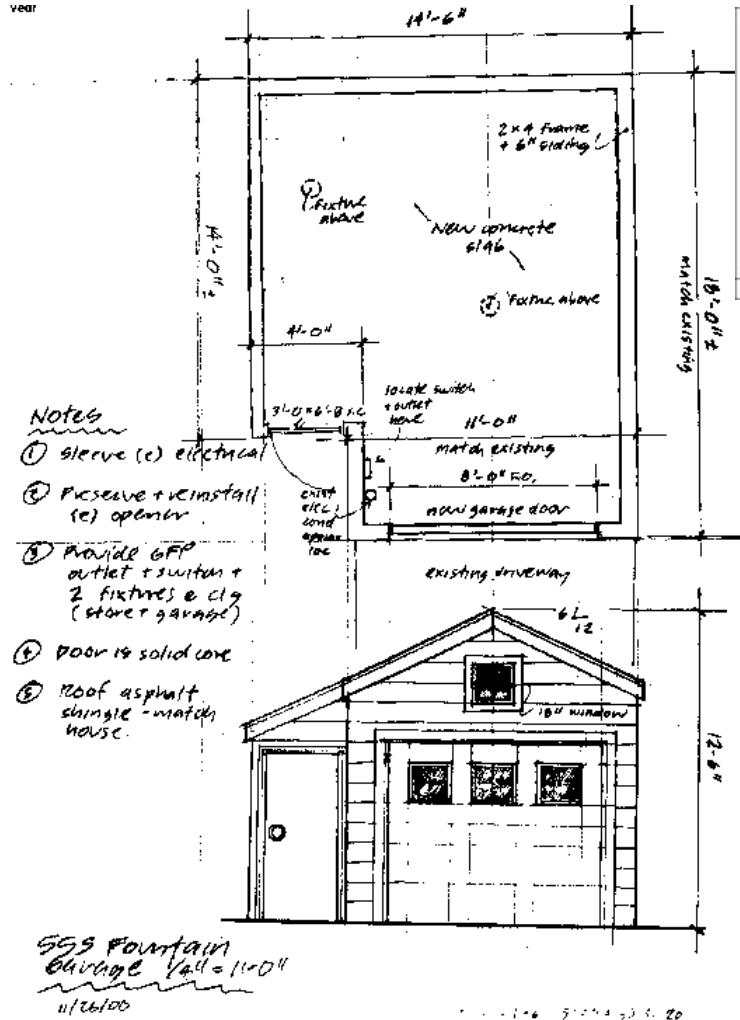 year
14'-6"
2x4 frame
+ 6" siding
Fixture
above
New concrete
slab
Fixture above
14'-0" ±
18'-0" ±
match existing
4'-0"
3'-0 x 6'-8 s.c
locate switch
+ outlet
here
11'-0"
match existing
8'-0" r.o.
new garage door
exist
elec
cond
approx
loc
existing driveway
Notes
① Sleeve (e) electrical
② Preserve + reinstall
(e) opener
③ Provide GFP
outlet + switch +
2 fixtures @ clg
(store + garage)
④ Door is solid core
⑤ Roof asphalt
shingle - match
house.
6
12
18" window
12'-6"
555 Fountain
Garage 1/4" = 1'-0"
11/26/00